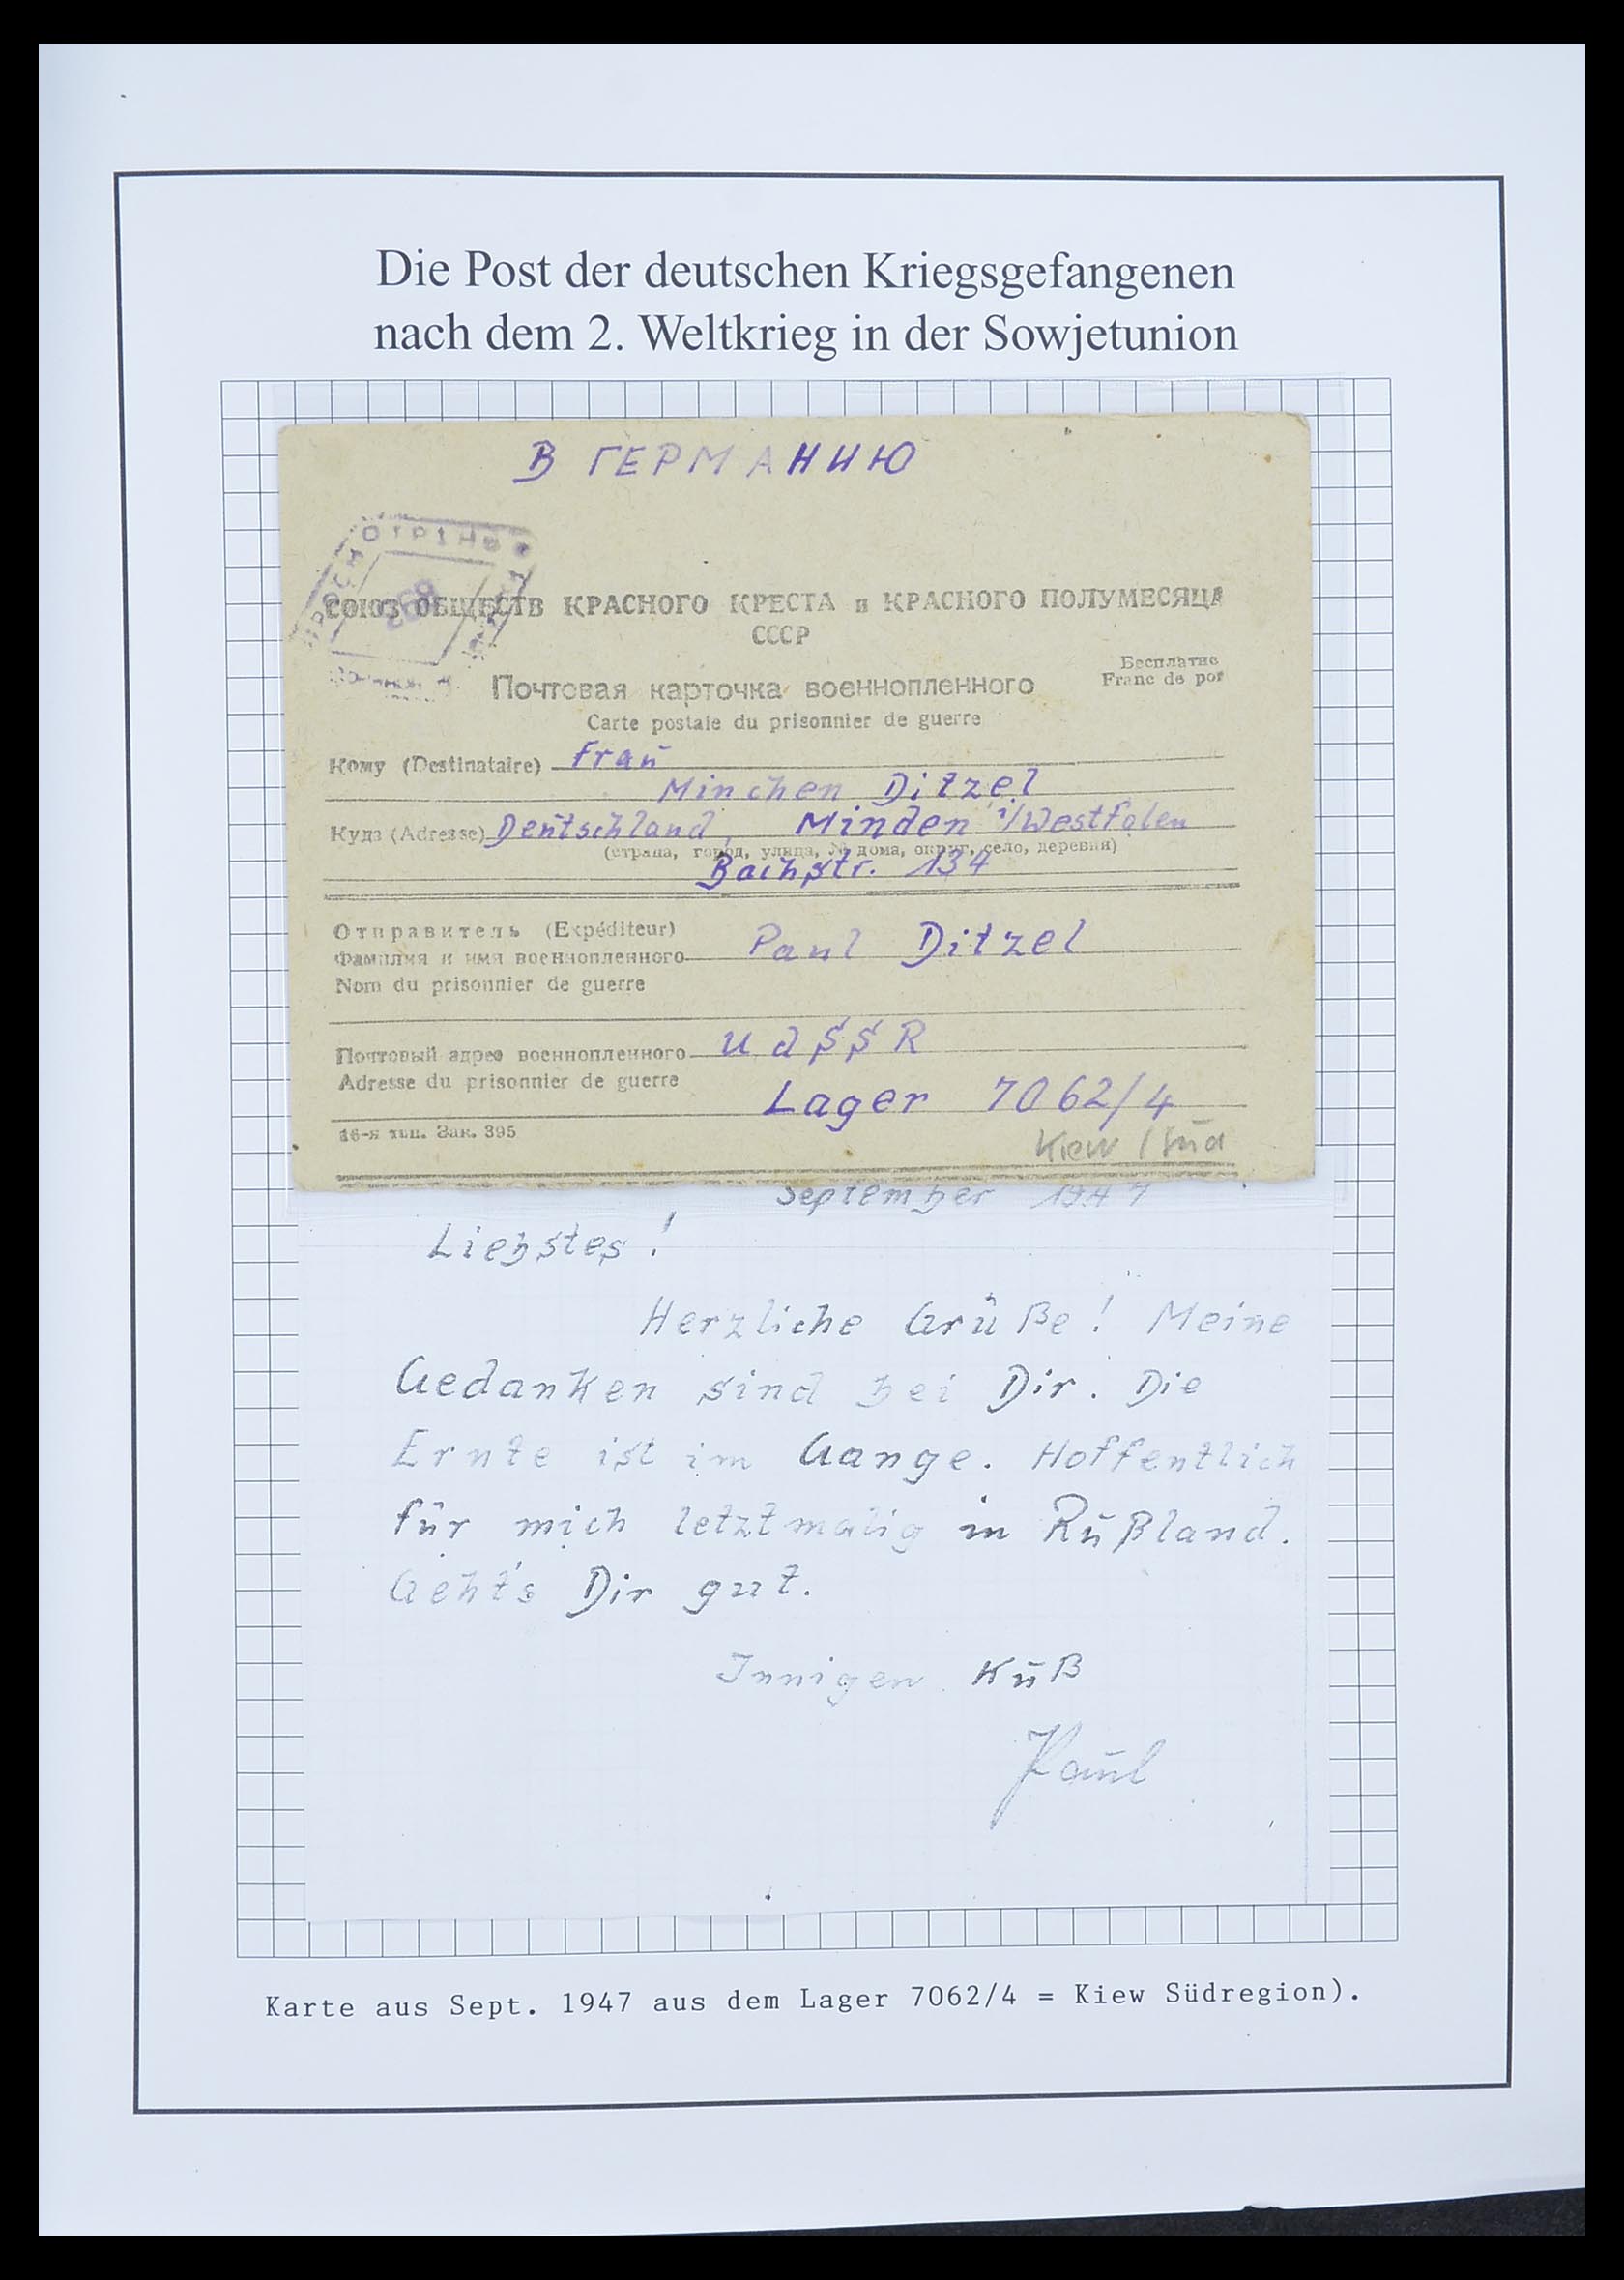 Die Post der deutschen Kriegsgefangenen
nach dem 2. Weltkrieg in der Sowjetunion
В ГЕРМАНИЮ
СОЮЗ ОБЩЕСТВ КРАСНОГО КРЕСТА и КРАСНОГО ПОЛУМЕСЯЦА
СССР
Бесплатно
Franc de por
Почтовая карточка военнопленного
Carte postale du prisonnier de guerre
Кому (Destinataire) Frau
Minchen Ditzel
Куда (Adresse) Deutschland, Minden i/Westfalen
(страна, город, улица, № дома, округ, село, деревня)
Bachstr. 134
Отправитель (Expéditeur)
Фамилия и имя военнопленного Paul Ditzel
Nom du prisonnier de guerre
Почтовый адрес военнопленного UdSSR
Adresse du prisonnier de guerre
Lager 7062/4
16-я тип. Зак. 395
Kiew / Süd
September 1947
Liebstes!
Herzliche Grüße! Meine
Gedanken sind bei Dir. Die
Ernte ist im Gange. Hoffentlich
für mich letztmalig in Rußland.
Geht's Dir gut.
Innigen Kuß
Paul
Karte aus Sept. 1947 aus dem Lager 7062/4 = Kiew Südregion).